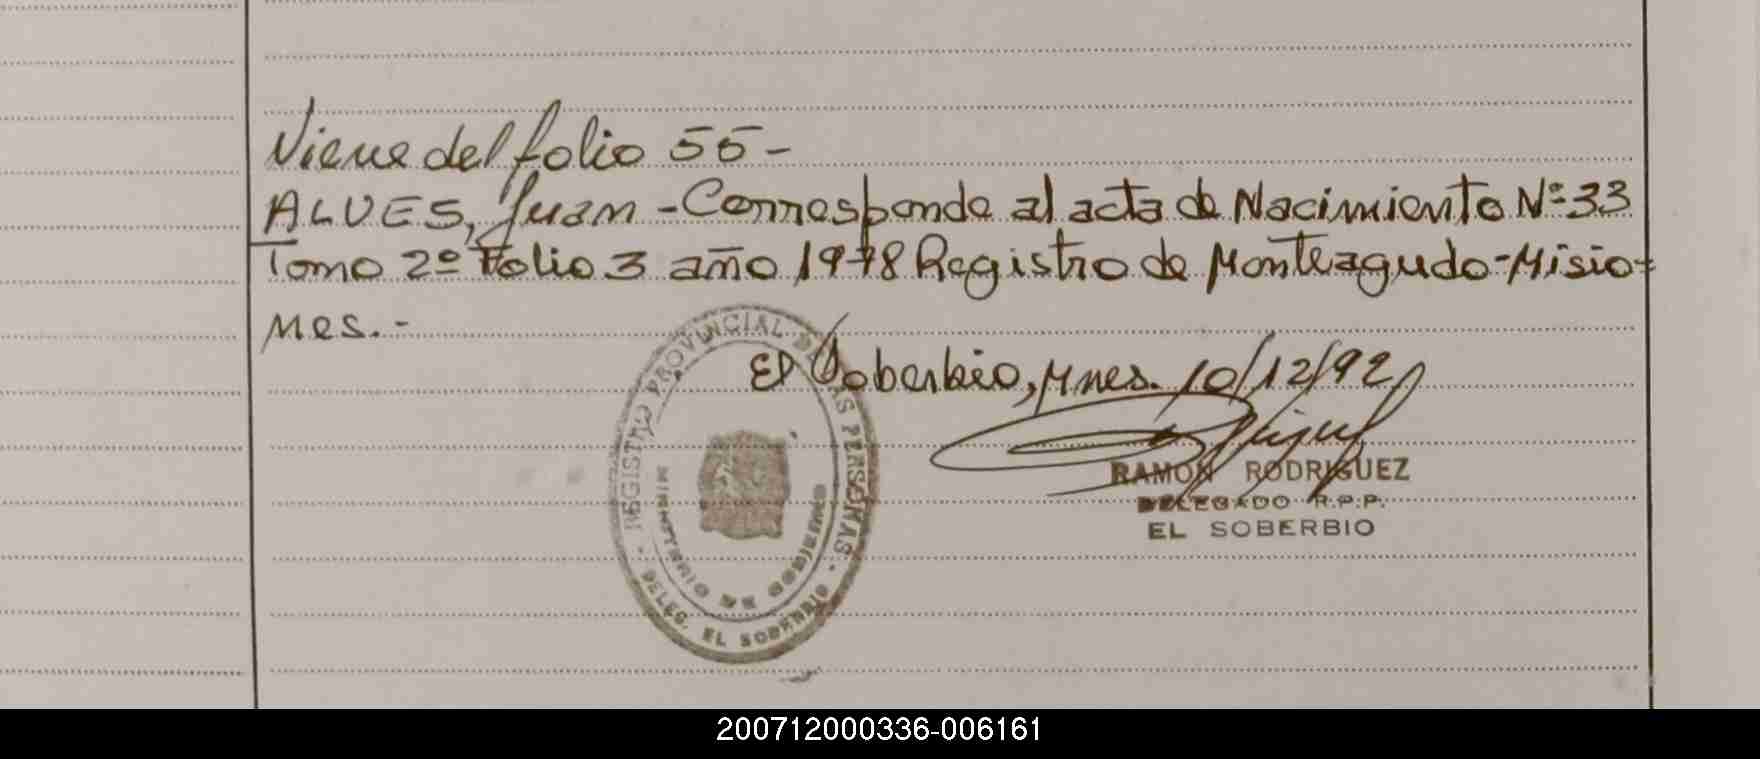 Viene del folio 55-
ALVES, Juan - Corresponde al acta de Nacimiento Nº 33
Tomo 2º Folio 3 año 1978 Registro de Monteagudo - Misio=
nes.-
El Soberbio, Mnes. 10/12/92
RAMON RODRIGUEZ
DELEGADO R.P.P.
EL SOBERBIO
REGISTRO PROVINCIAL DE LAS PERSONAS
MINISTERIO DE GOBIERNO
DELEG. EL SOBERBIO
200712000336-006161